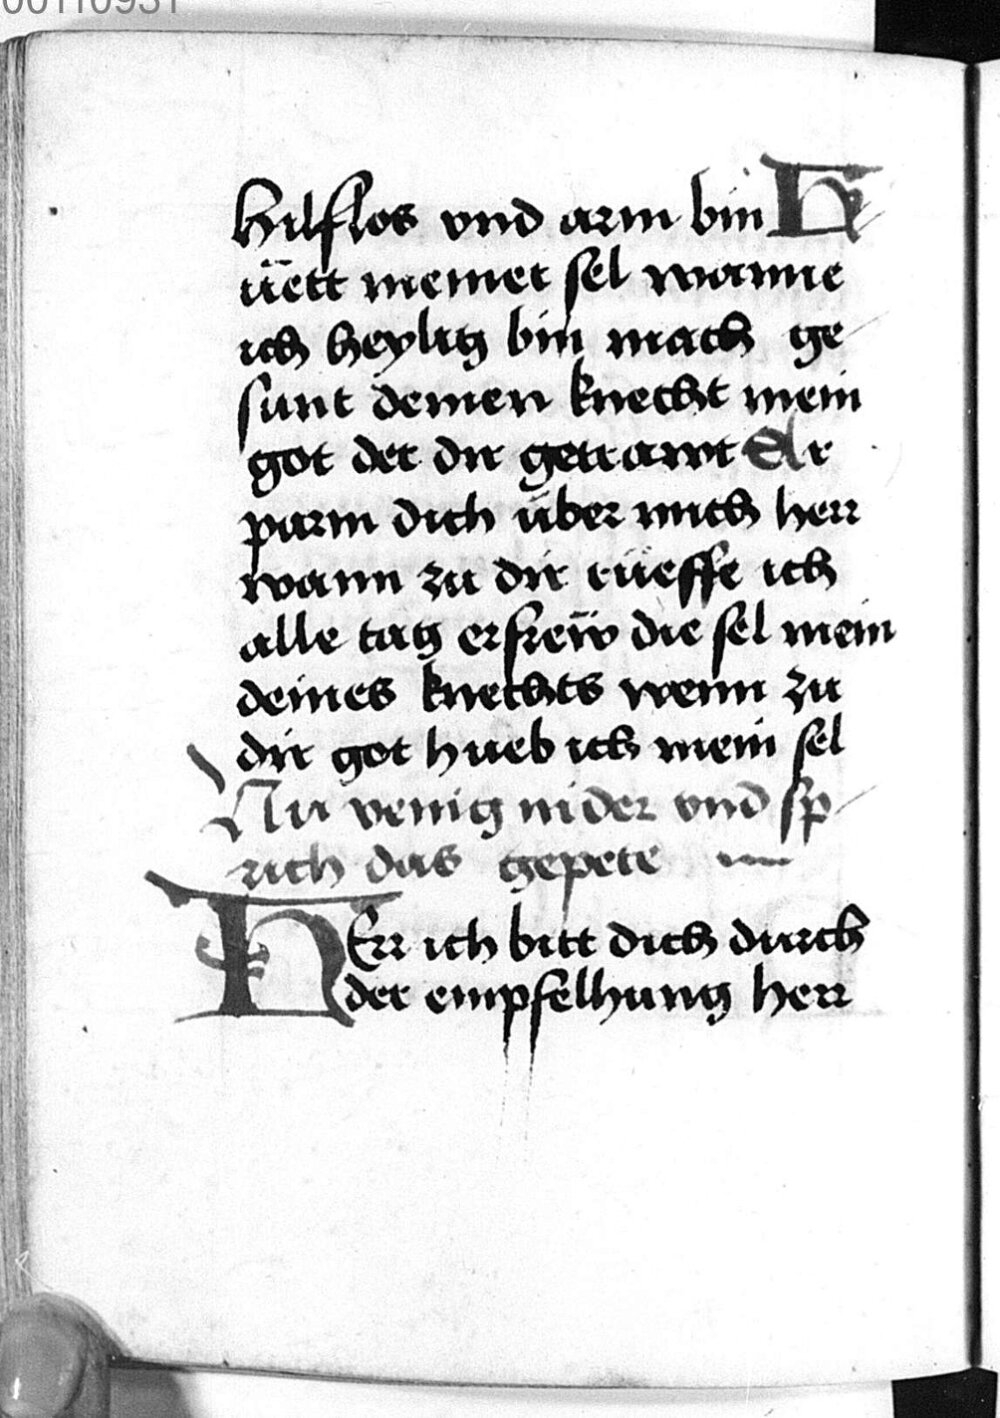 00110931
hilflos vnd arm bin H
üett meiner sel wanne
ich heylig bin mach ge
sunt deinen knecht mein
got der dir getrawt Er
parm dich über mich herr
wann zu dir rüeffe ich
alle tag erfreẅ die sel mein
deines knechts wenn zu
dir got hueb ich mein sel
Nu venig nider vnd sp
rich das gepete
HErr ich bitt dich durch
der empfelhung herr